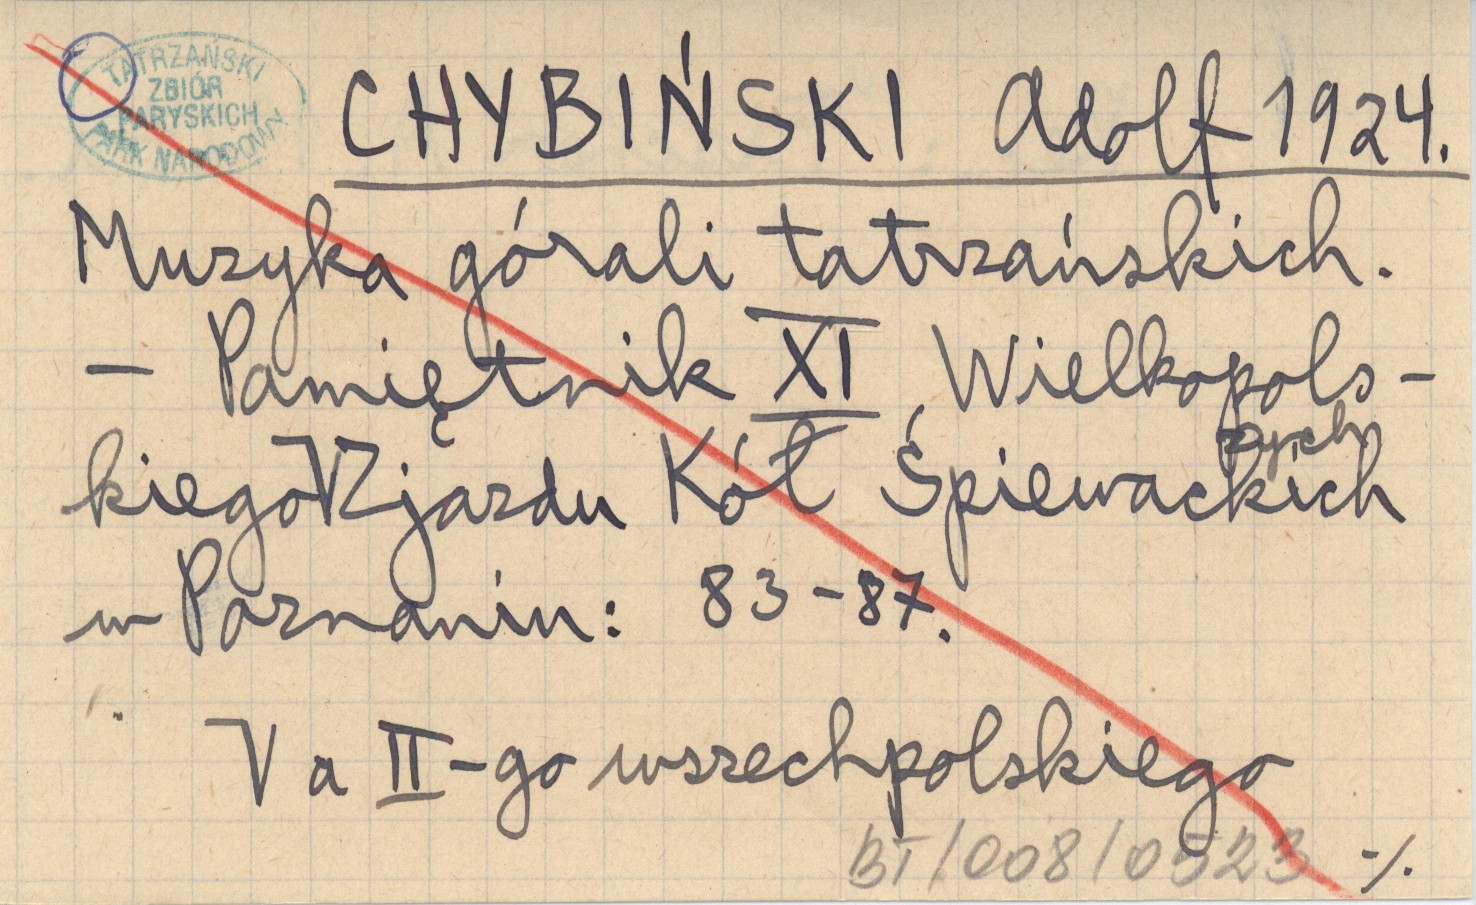 TATRZAŃSKI
ZBIÓR
PARYSKICH
PARK NARODOWY
CHYBIŃSKI Adolf 1924.
Muzyka górali tatrzańskich.
— Pamiętnik XI Wielkopols-
kiego V Zjazdu Kół Śpiewackich
w Poznaniu: 83-87.
V a II-go wszechpolskiego
BT/008/0523 -/.